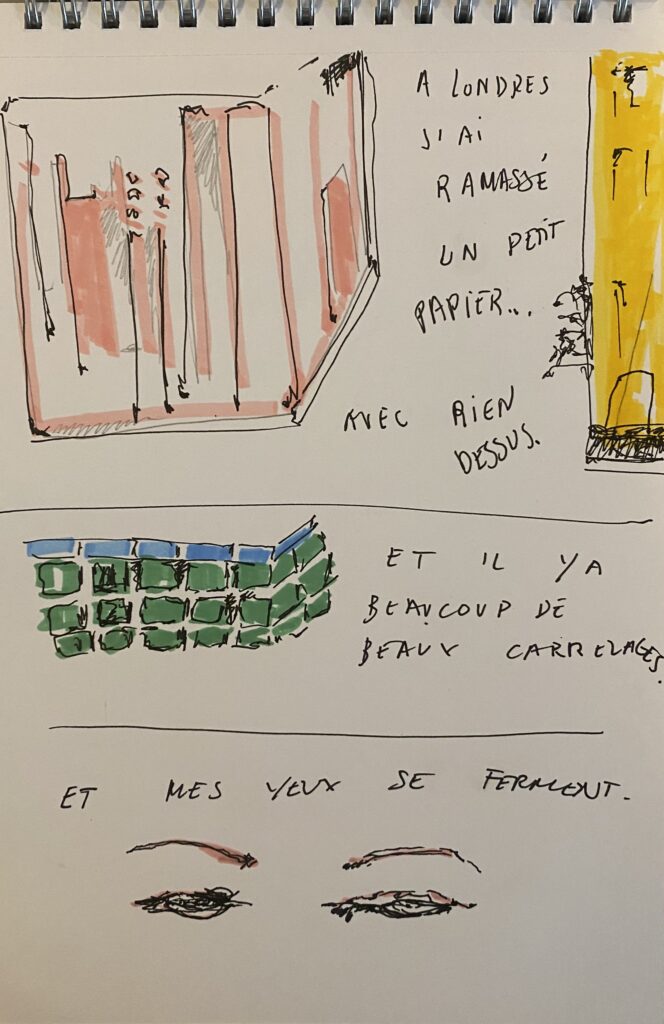 A LONDRES
J'AI
RAMASSÉ
UN PETIT
PAPIER...
AVEC RIEN
DESSUS.
ET IL Y A
BEAUCOUP DE
BEAUX CARRELAGES.
ET MES YEUX SE FERMENT.